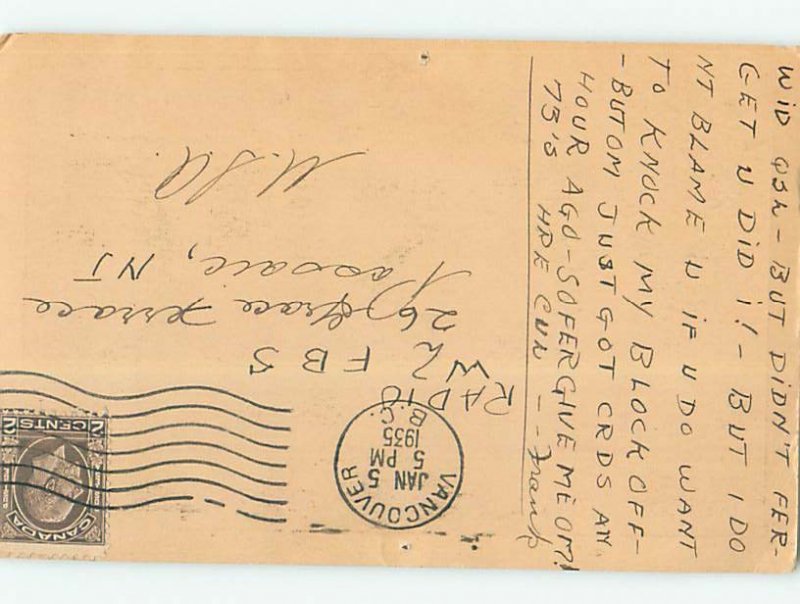 WID QSL - BUT DIDN'T FER-
GET U DID I! - BUT I DO
NT BLAME U IF U DO WANT
TO KNOCK MY BLOCK OFF-
- BUT OM JUST GOT CRDS AN
HOUR AGO - SO FERGIVE ME OM!
73'S HPE CUL - - Frank
VANCOUVER
JAN 5
5 PM
1935
B.C.
CANADA
2 CENTS 2
RADIO
W2 FBS
26 Grace Terrace
Passaic, NJ
U.S.A